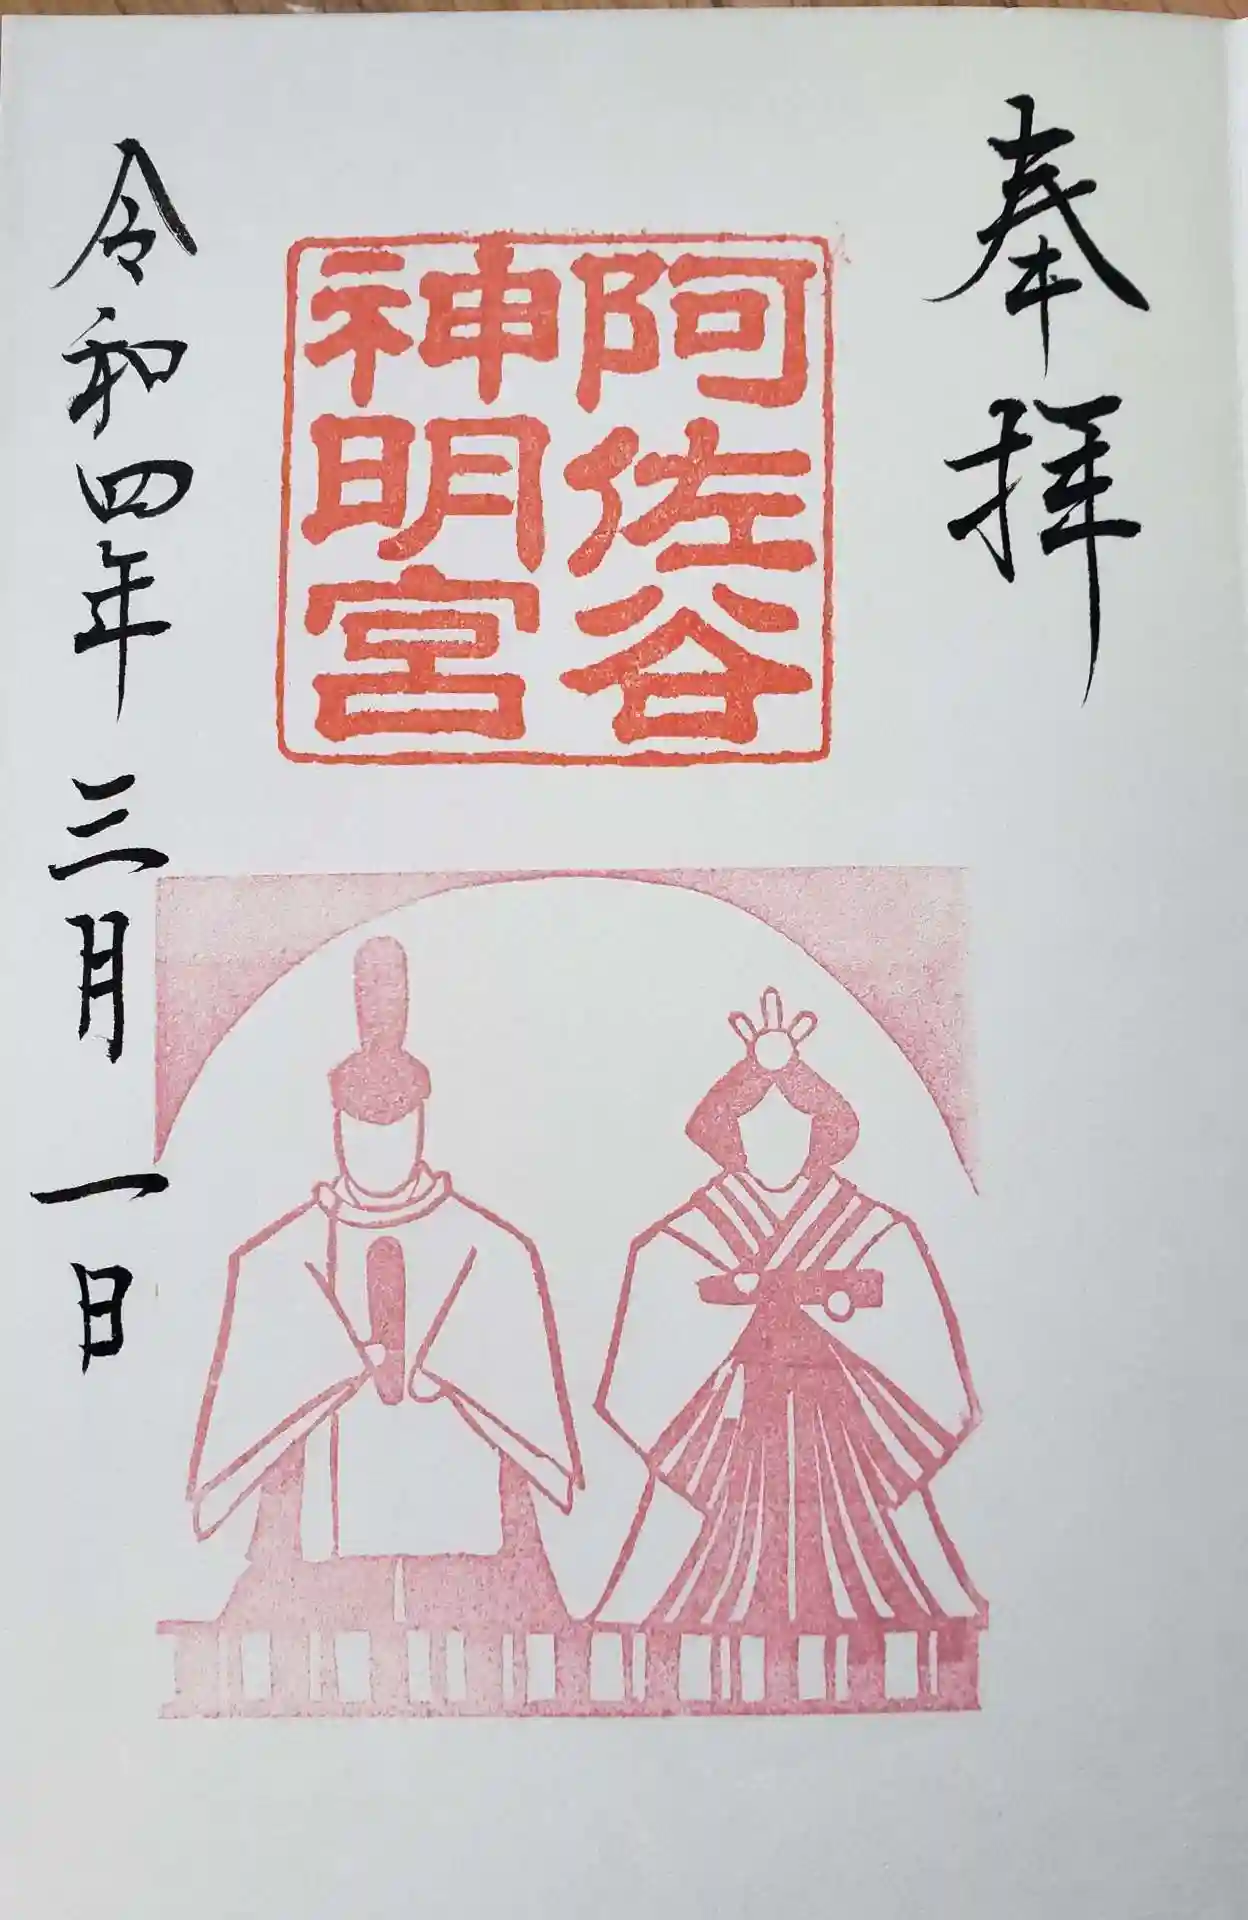 奉拝
阿佐谷
神明宮
令和四年三月一日